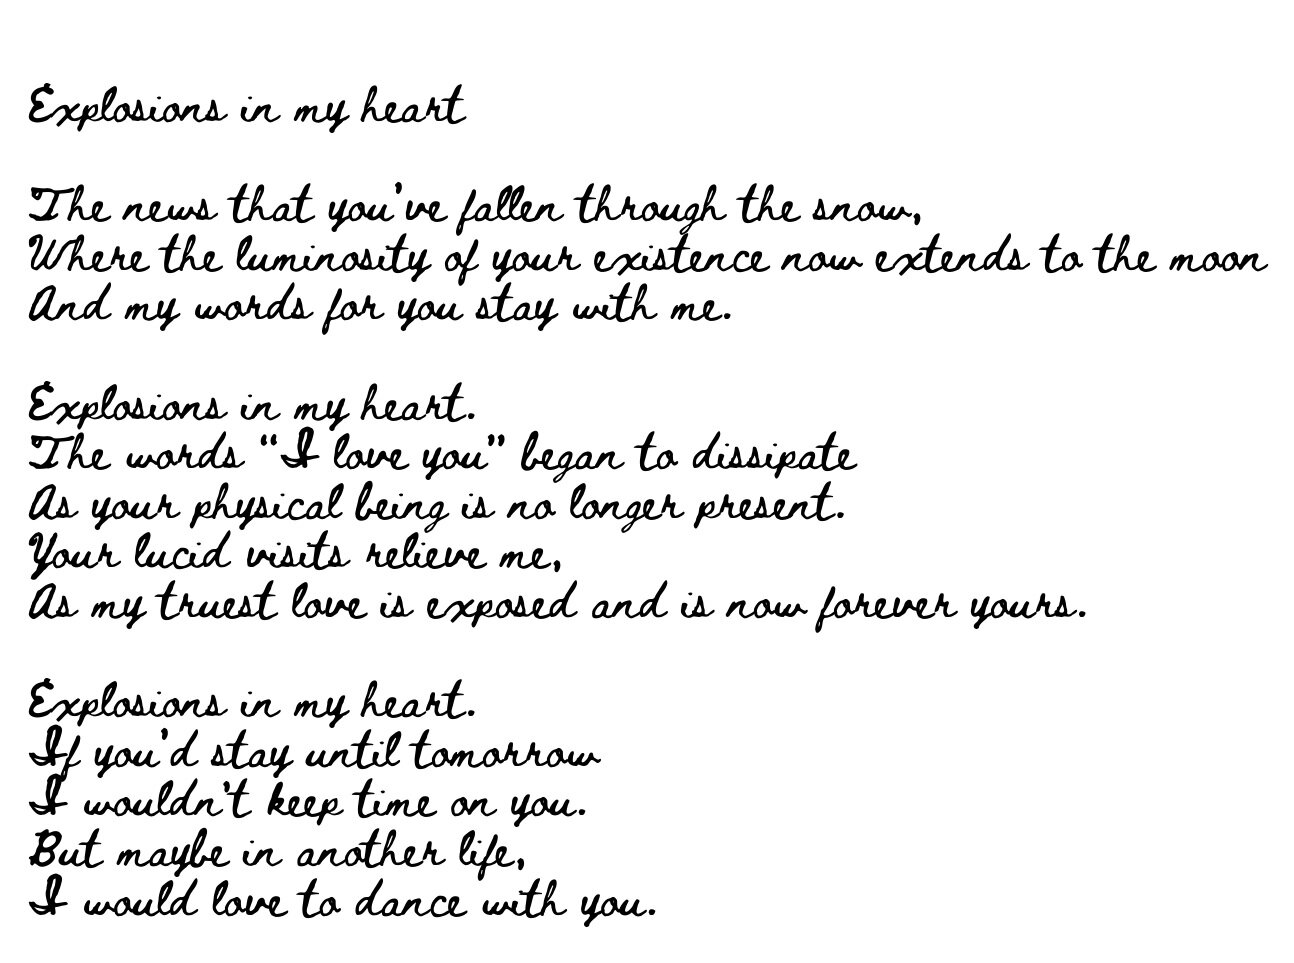 Explosions in my heart
The news that you've fallen through the snow,
Where the luminosity of your existence now extends to the moon
And my words for you stay with me.
Explosions in my heart.
The words “I love you” began to dissipate
As your physical being is no longer present.
Your lucid visits relieve me,
As my truest love is exposed and is now forever yours.
Explosions in my heart.
If you'd stay until tomorrow
I wouldn't keep time on you.
But maybe in another life,
I would love to dance with you.